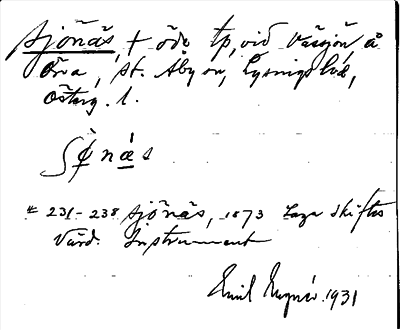 Sjönäs, + öde tp, vid Vässjön, å
Örva, St. Aby sn, Lysings hd,
Österg. l.
ʃǿnás
# 231-238 Sjönäs, 1873 Laga skiftes
Värd. Instrument
Emil 1931